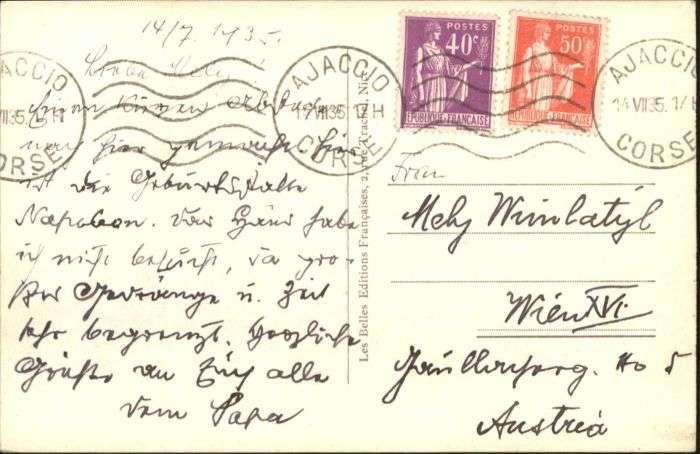 14/7. 1935.
Liebe Mely!
Einen kurzen
nach hier gemacht. Hier
ist die Geburtsstätte
Napoleon. Das Haus habe
ich nicht besucht, da gro-
ßes Gedränge u. Zeit
sehr begrenzt. Herzliche
Grüße an Euch alle
vom Papa
Les Belles Editions Françaises, 2, rue Tracha, Nice
AJACCIO
14 VII 35. 17 H
CORSE
AJACCIO
17 H
CORSE
POSTES
40c
REPUBLIQUE FRANÇAISE
POSTES
50c
REPUBLIQUE FRANÇAISE
AJACCIO
14 VII 35.
CORSE
Frau
Mely
Wien XVI.
No 5
Austria